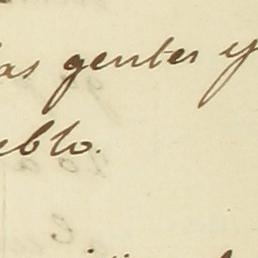 as gentes y
eblo.